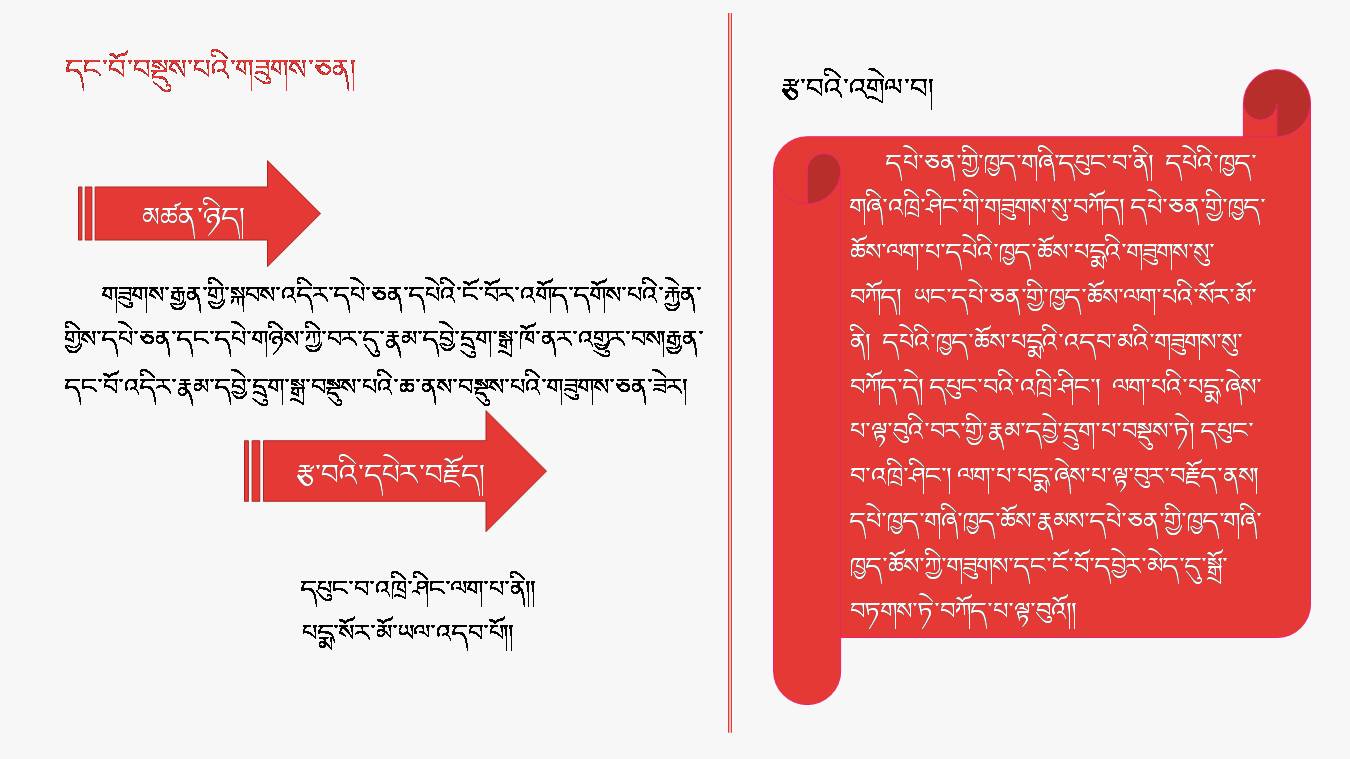 དང་པོ་བསྡུས་པའི་གཟུགས་ཅན།
མཚན་ཉིད།
གཟུགས་རྒྱན་གྱི་སྐབས་འདིར་དཔེ་ཅན་དཔེའི་ངོ་བོར་འགོད་དགོས་པའི་རྐྱེན་
གྱིས་དཔེ་ཅན་དང་དཔེ་གཉིས་ཀྱི་བར་དུ་རྣམ་དབྱེ་དྲུག་སྒྲ་ཁོ་ནར་འགྱུར་བས།རྒྱན་
དང་པོ་འདིར་རྣམ་དབྱེ་དྲུག་སྒྲ་བསྡུས་པའི་ཆ་ནས་བསྡུས་པའི་གཟུགས་ཅན་ཟེར།
རྩ་བའི་དཔེར་བརྗོད།
དཔུང་བ་འཁྲི་ཤིང་ལག་པ་ནི།།
པདྨ་སོར་མོ་ཡལ་འདབ་པོ།།
རྩ་བའི་འགྲེལ་བ།
དཔེ་ཅན་གྱི་ཁྱད་གཞི་དཔུང་བ་ནི།  དཔེའི་ཁྱད་
གཞི་འཁྲི་ཤིང་གི་གཟུགས་སུ་བཀོད། དཔེ་ཅན་གྱི་ཁྱད་
ཆོས་ལག་པ་དཔེའི་ཁྱད་ཆོས་པདྨའི་གཟུགས་སུ་
བཀོད།  ཡང་དཔེ་ཅན་གྱི་ཁྱད་ཆོས་ལག་པའི་སོར་མོ་
ནི།  དཔེའི་ཁྱད་ཆོས་པདྨའི་འདབ་མའི་གཟུགས་སུ་
བཀོད་དེ། དཔུང་བའི་འཁྲི་ཤིང་།  ལག་པའི་པདྨ་ཞེས་
པ་ལྟ་བུའི་བར་གྱི་རྣམ་དབྱེ་དྲུག་པ་བསྡུས་ཏེ། དཔུང་
བ་འཁྲི་ཤིང་། ལག་པ་པདྨ་ཞེས་པ་ལྟ་བུར་བརྗོད་ནས།
དཔེ་ཁྱད་གཞི་ཁྱད་ཆོས་རྣམས་དཔེ་ཅན་གྱི་ཁྱད་གཞི་
ཁྱད་ཆོས་ཀྱི་གཟུགས་དང་ངོ་བོ་དབྱེར་མེད་དུ་སྒྲོ་
བཏགས་ཏེ་བཀོད་པ་ལྟ་བུའོ།།